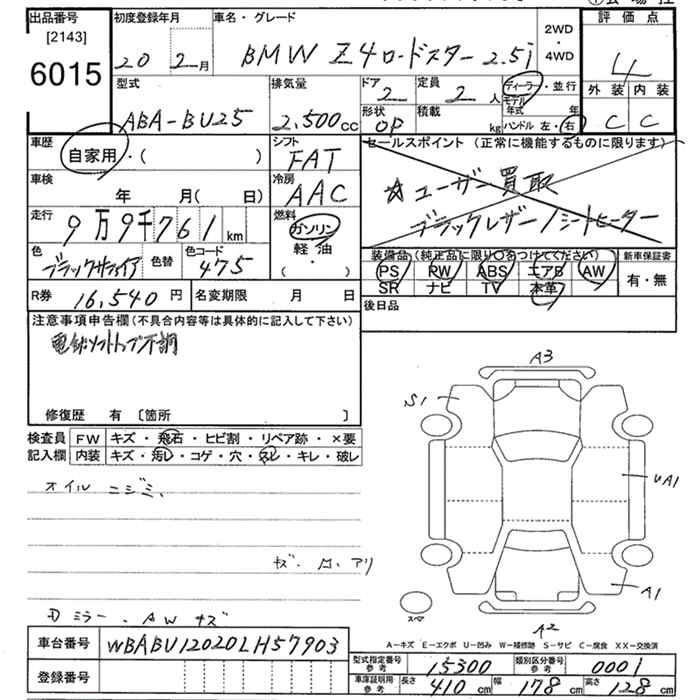 出品番号 初度登録年月 車名・グレード 2WD 評価点
[2143] 20年2月 BMW Z4ロードスター 2.5i ・4WD 4
6015 型式 排気量 ドア 定員 ディーラー・並行 外装 内装
ABA-BU25 2,500cc 2 2人 モデル年式 年 C C
形状 積載
OP kg ハンドル 左・右
車歴 自家用・( ) シフト FAT セールスポイント (正常に機能するものに限ります)
車検 年 月( 日) 冷房 AAC ☆ユーザー買取
走行 9万9千761km 燃料 ガソリン ブラックレザー/シートヒーター
軽・油
・( )
色 ブラックサファイア 色替 色コード 475 装備品 (純正品に限り○をつけてください) 新車保証書
PS PW ABS エアB AW 有・無
SR ナビ TV 本革
R券 16,540円 名変期限 月 日 後日品
注意事項申告欄(不具合内容等は具体的に記入して下さい)
電動ソフトトップ不調
修復歴 有〔箇所 〕
検査員 FW キズ・飛石・ヒビ割・リペア跡・×要
記入欄 内装 キズ・汚レ・コゲ・穴・スレ・キレ・破レ
オイルニジミ、
ミラー、AWキズ
A3
S1
UA1
A1
スペア
A2
A-キズ E-エクボ U-凹み W-補修跡 S-サビ C-腐食 XX-交換済
車台番号 WBABU12020LH57903
登録番号
型式指定番号 参考 15300 類別区分番号 参考 0001
車庫証明用 参考 長さ 410cm 幅 178cm 高さ 128cm